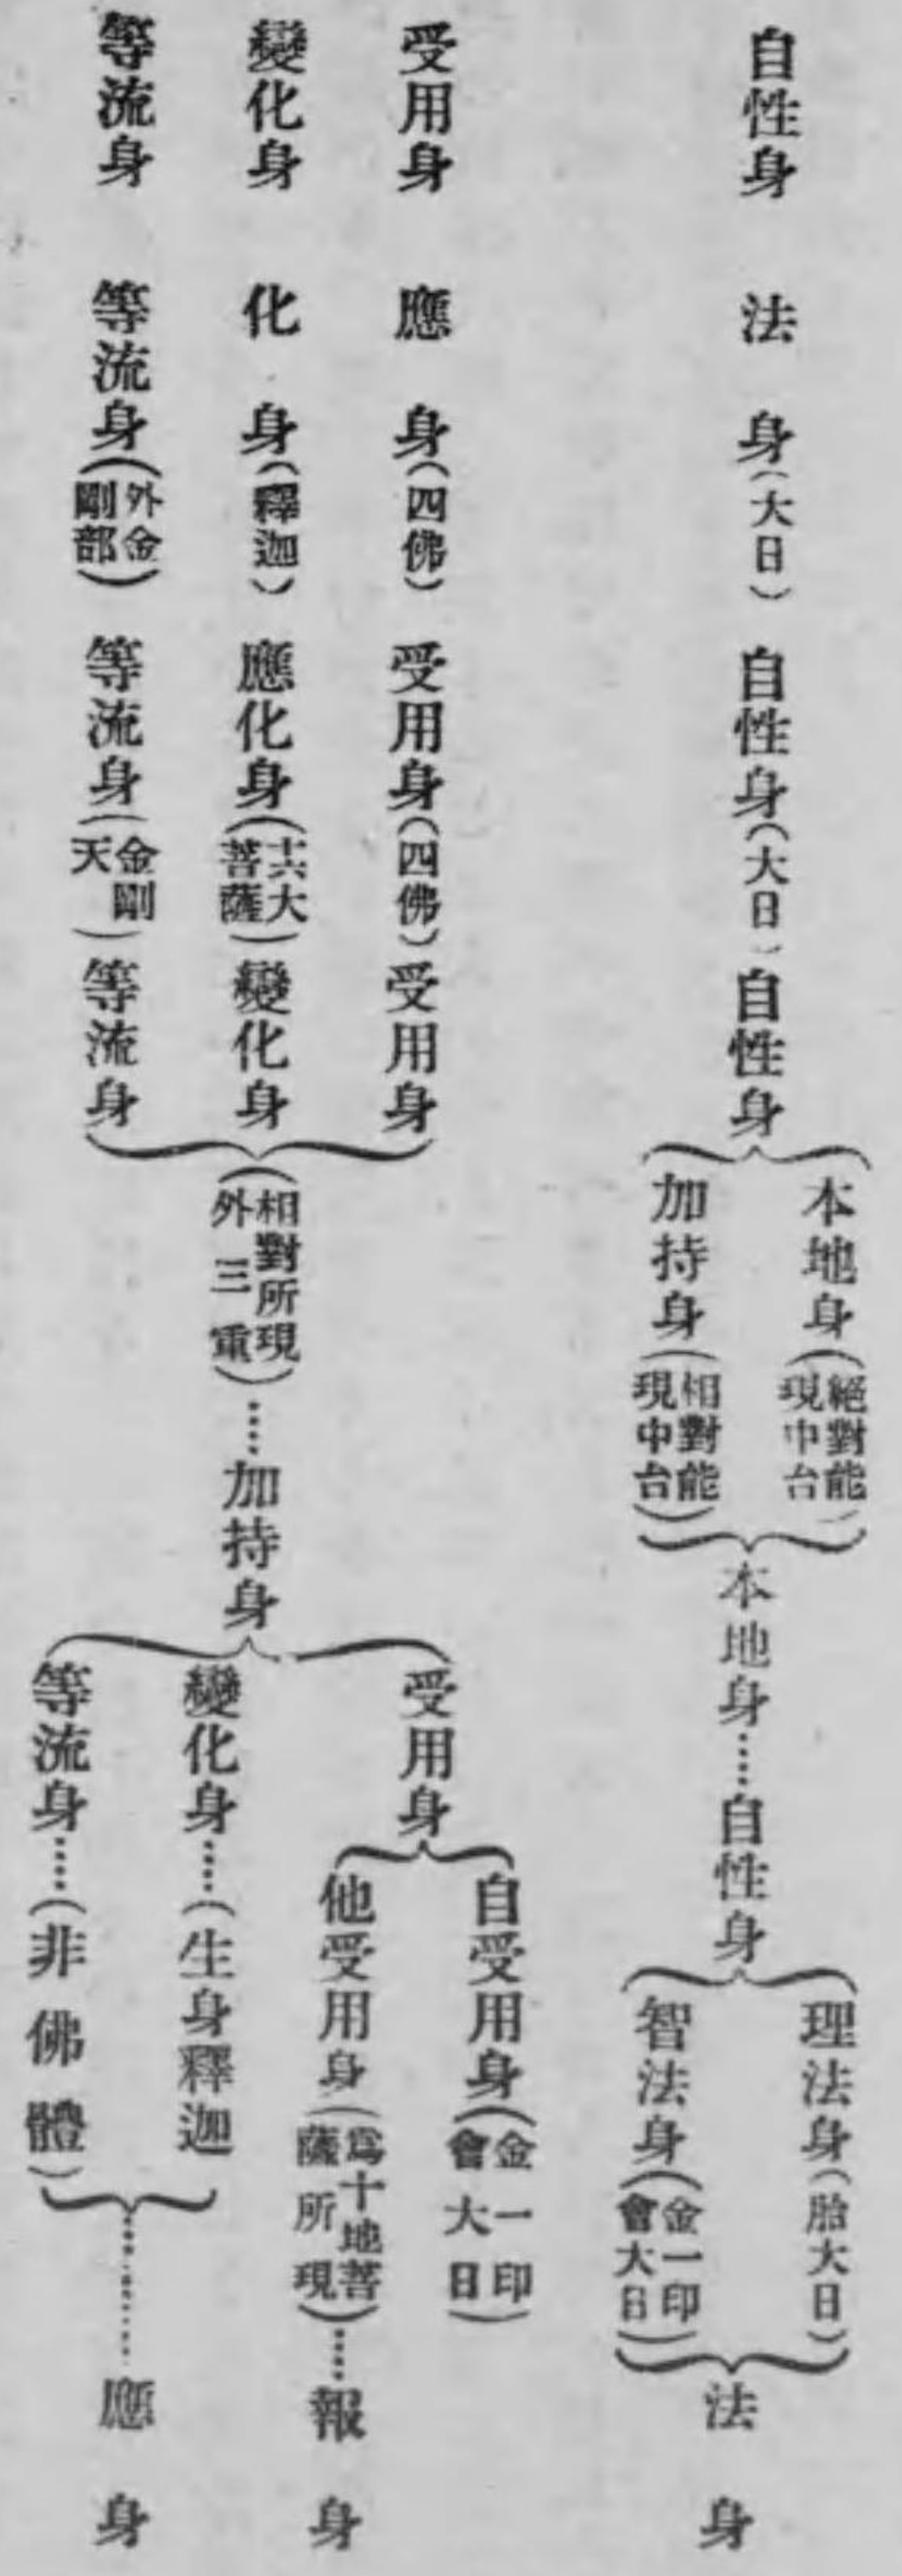 自性身　法身(大日)　自性身(大日)　自性身
本地身(絕對能現中台)
加持身(相對能現中台)
本地身……自性身
理法身(胎大日)
智法身(金一印會大日)
法身
受用身　應身(四佛)　受用身(四佛)　受用身
變化身　化身(釋迦)　應化身(十六大菩薩)　變化身
等流身　等流身(外金剛部)　等流身(金剛天)　等流身
(相對所現外三重)……加持身
受用身
自受用身(金一印會大日)
他受用身(爲十地菩薩所現)……報身
變化身……(生身釋迦
等流身……(非佛體)
………應身